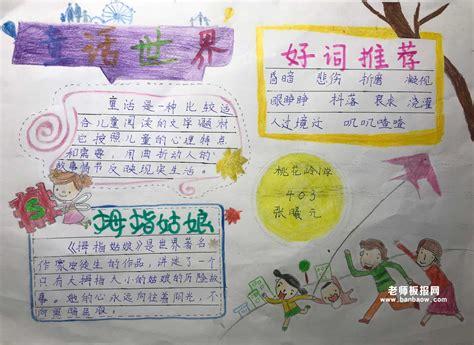 童话世界
童话是一种比较适
合儿童阅读的文学题材
它按照儿童的心理特点
和需要,用曲折动人的
故事情节反映现实生活。
好词推荐
昏暗 悲伤 折磨 凝视
眼睁睁 抖落 哀求 浇灌
人过境迁 叽叽喳喳
桃花岭小学
403
张曦元
拇指姑娘
《拇指姑娘》是世界著名
作家安徒生的作品,讲述了一个
只有大拇指大小的姑娘的历险故
事。她的心永远向往着阳光,不
向黑暗屈服。
老师板报网
www.banbaow.com